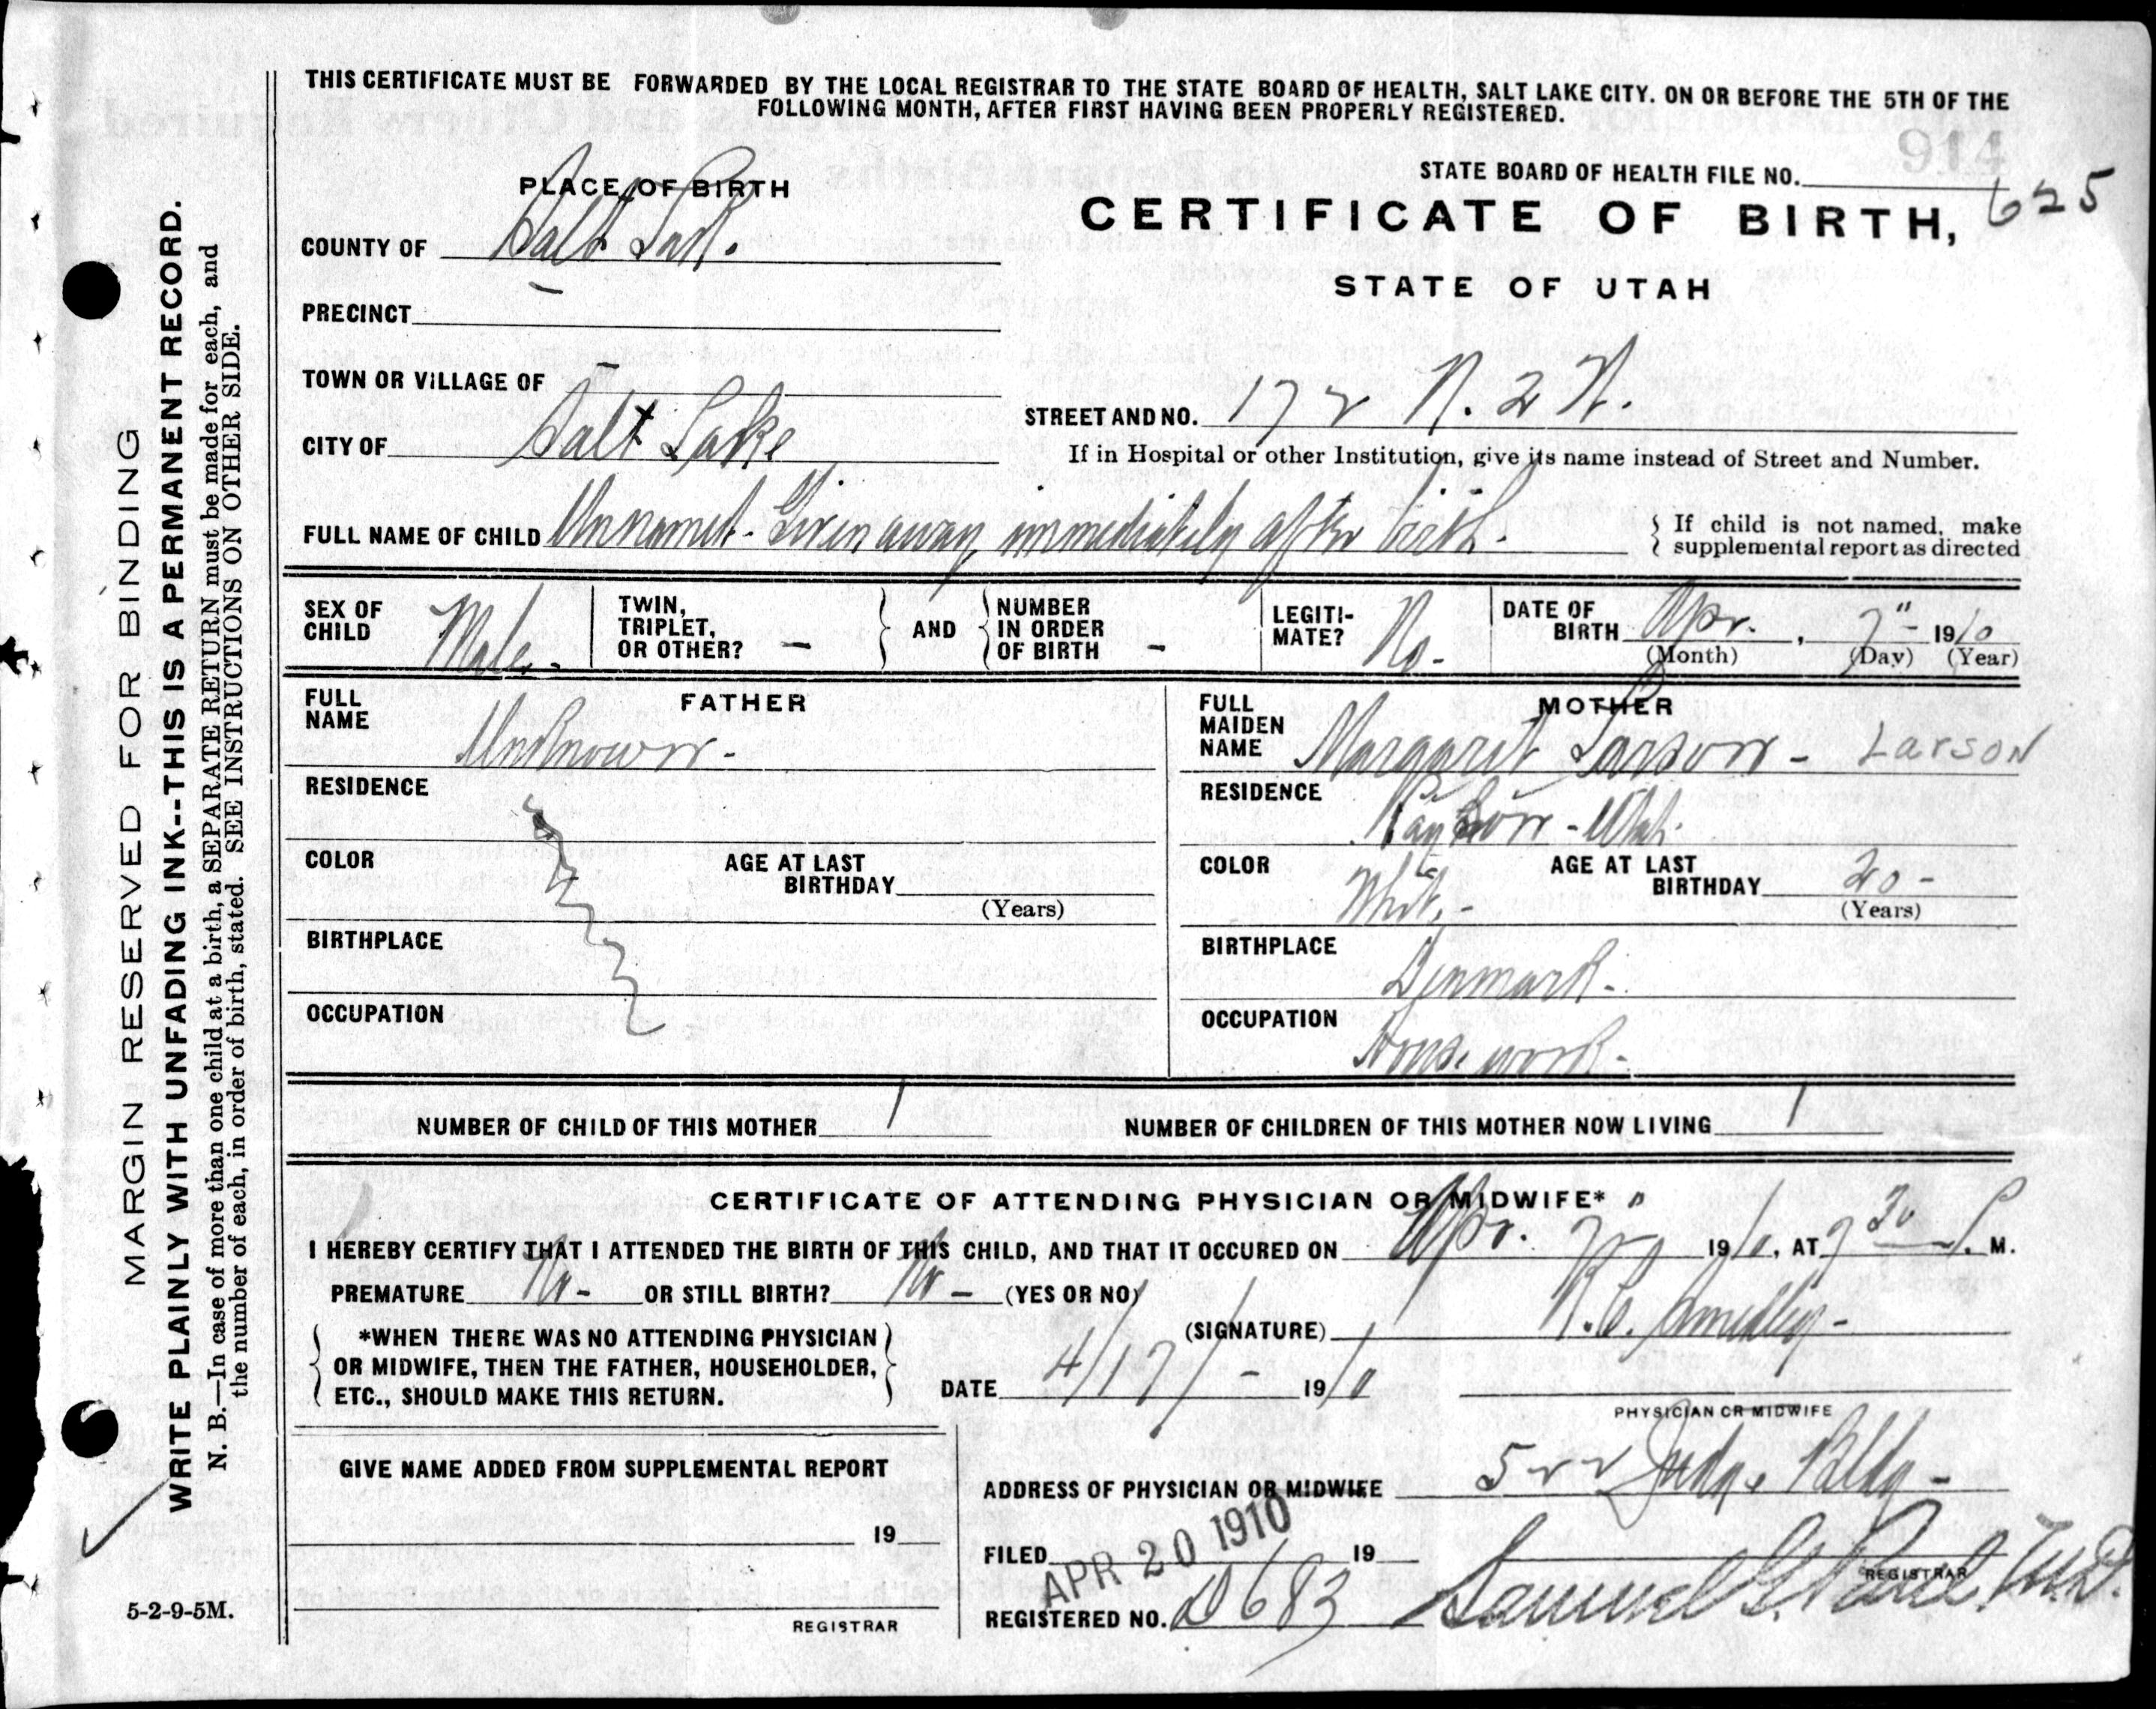 THIS CERTIFICATE MUST BE FORWARDED BY THE LOCAL REGISTRAR TO THE STATE BOARD OF HEALTH, SALT LAKE CITY. ON OR BEFORE THE 5TH OF THE
FOLLOWING MONTH, AFTER FIRST HAVING BEEN PROPERLY REGISTERED.
914
PLACE OF BIRTH
STATE BOARD OF HEALTH FILE NO. 625
CERTIFICATE OF BIRTH,
STATE OF UTAH
COUNTY OF Salt Lak.
PRECINCT
TOWN OR VILLAGE OF
STREET AND NO. 172 N. 2 W.
CITY OF Salt Lake
If in Hospital or other Institution, give its name instead of Street and Number.
FULL NAME OF CHILD Unnamed - Given away immediately after birth.
{ If child is not named, make
supplemental report as directed
SEX OF CHILD Male. -
TWIN, TRIPLET, OR OTHER? -
AND
NUMBER IN ORDER OF BIRTH -
LEGITI-MATE? No.-
DATE OF BIRTH Apr., 7" - 1910
(Month) (Day) (Year)
FATHER
FULL NAME Unknown -
RESIDENCE
COLOR
AGE AT LAST BIRTHDAY
(Years)
BIRTHPLACE
OCCUPATION
MOTHER
FULL MAIDEN NAME Margaret Larson - Larson
RESIDENCE Payson - Utah.
COLOR White -
AGE AT LAST BIRTHDAY 20 -
(Years)
BIRTHPLACE Denmark -
OCCUPATION House work -
NUMBER OF CHILD OF THIS MOTHER 1
NUMBER OF CHILDREN OF THIS MOTHER NOW LIVING 1
CERTIFICATE OF ATTENDING PHYSICIAN OR MIDWIFE*
I HEREBY CERTIFY THAT I ATTENDED THE BIRTH OF THIS CHILD, AND THAT IT OCCURED ON Apr. 7" 1910, AT 9 30 P. M.
PREMATURE No - OR STILL BIRTH? No - (YES OR NO)
(SIGNATURE) R.C. Smedley -
*WHEN THERE WAS NO ATTENDING PHYSICIAN
OR MIDWIFE, THEN THE FATHER, HOUSEHOLDER,
ETC., SHOULD MAKE THIS RETURN.
DATE 4/17/ - 1910
PHYSICIAN OR MIDWIFE
GIVE NAME ADDED FROM SUPPLEMENTAL REPORT
19
REGISTRAR
ADDRESS OF PHYSICIAN OR MIDWIFE 522 Judge Bldg -
FILED APR 20 1910 19
REGISTERED NO. D 683
Samuel G. Paul M.D.
REGISTRAR
MARGIN RESERVED FOR BINDING
WRITE PLAINLY WITH UNFADING INK--THIS IS A PERMANENT RECORD.
N. B.—In case of more than one child at a birth, a SEPARATE RETURN must be made for each, and
the number of each, in order of birth, stated. SEE INSTRUCTIONS ON OTHER SIDE.
5-2-9-5M.